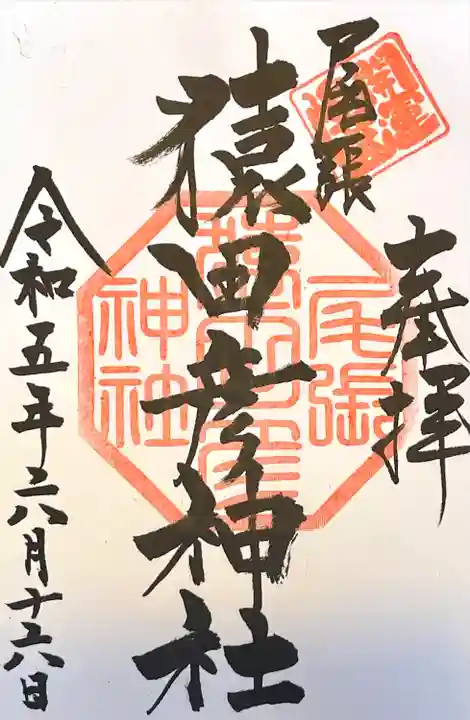 奉拝
尾張
猿田彦神社
令和五年六月十六日
開運
尾張
猿田彦
神社